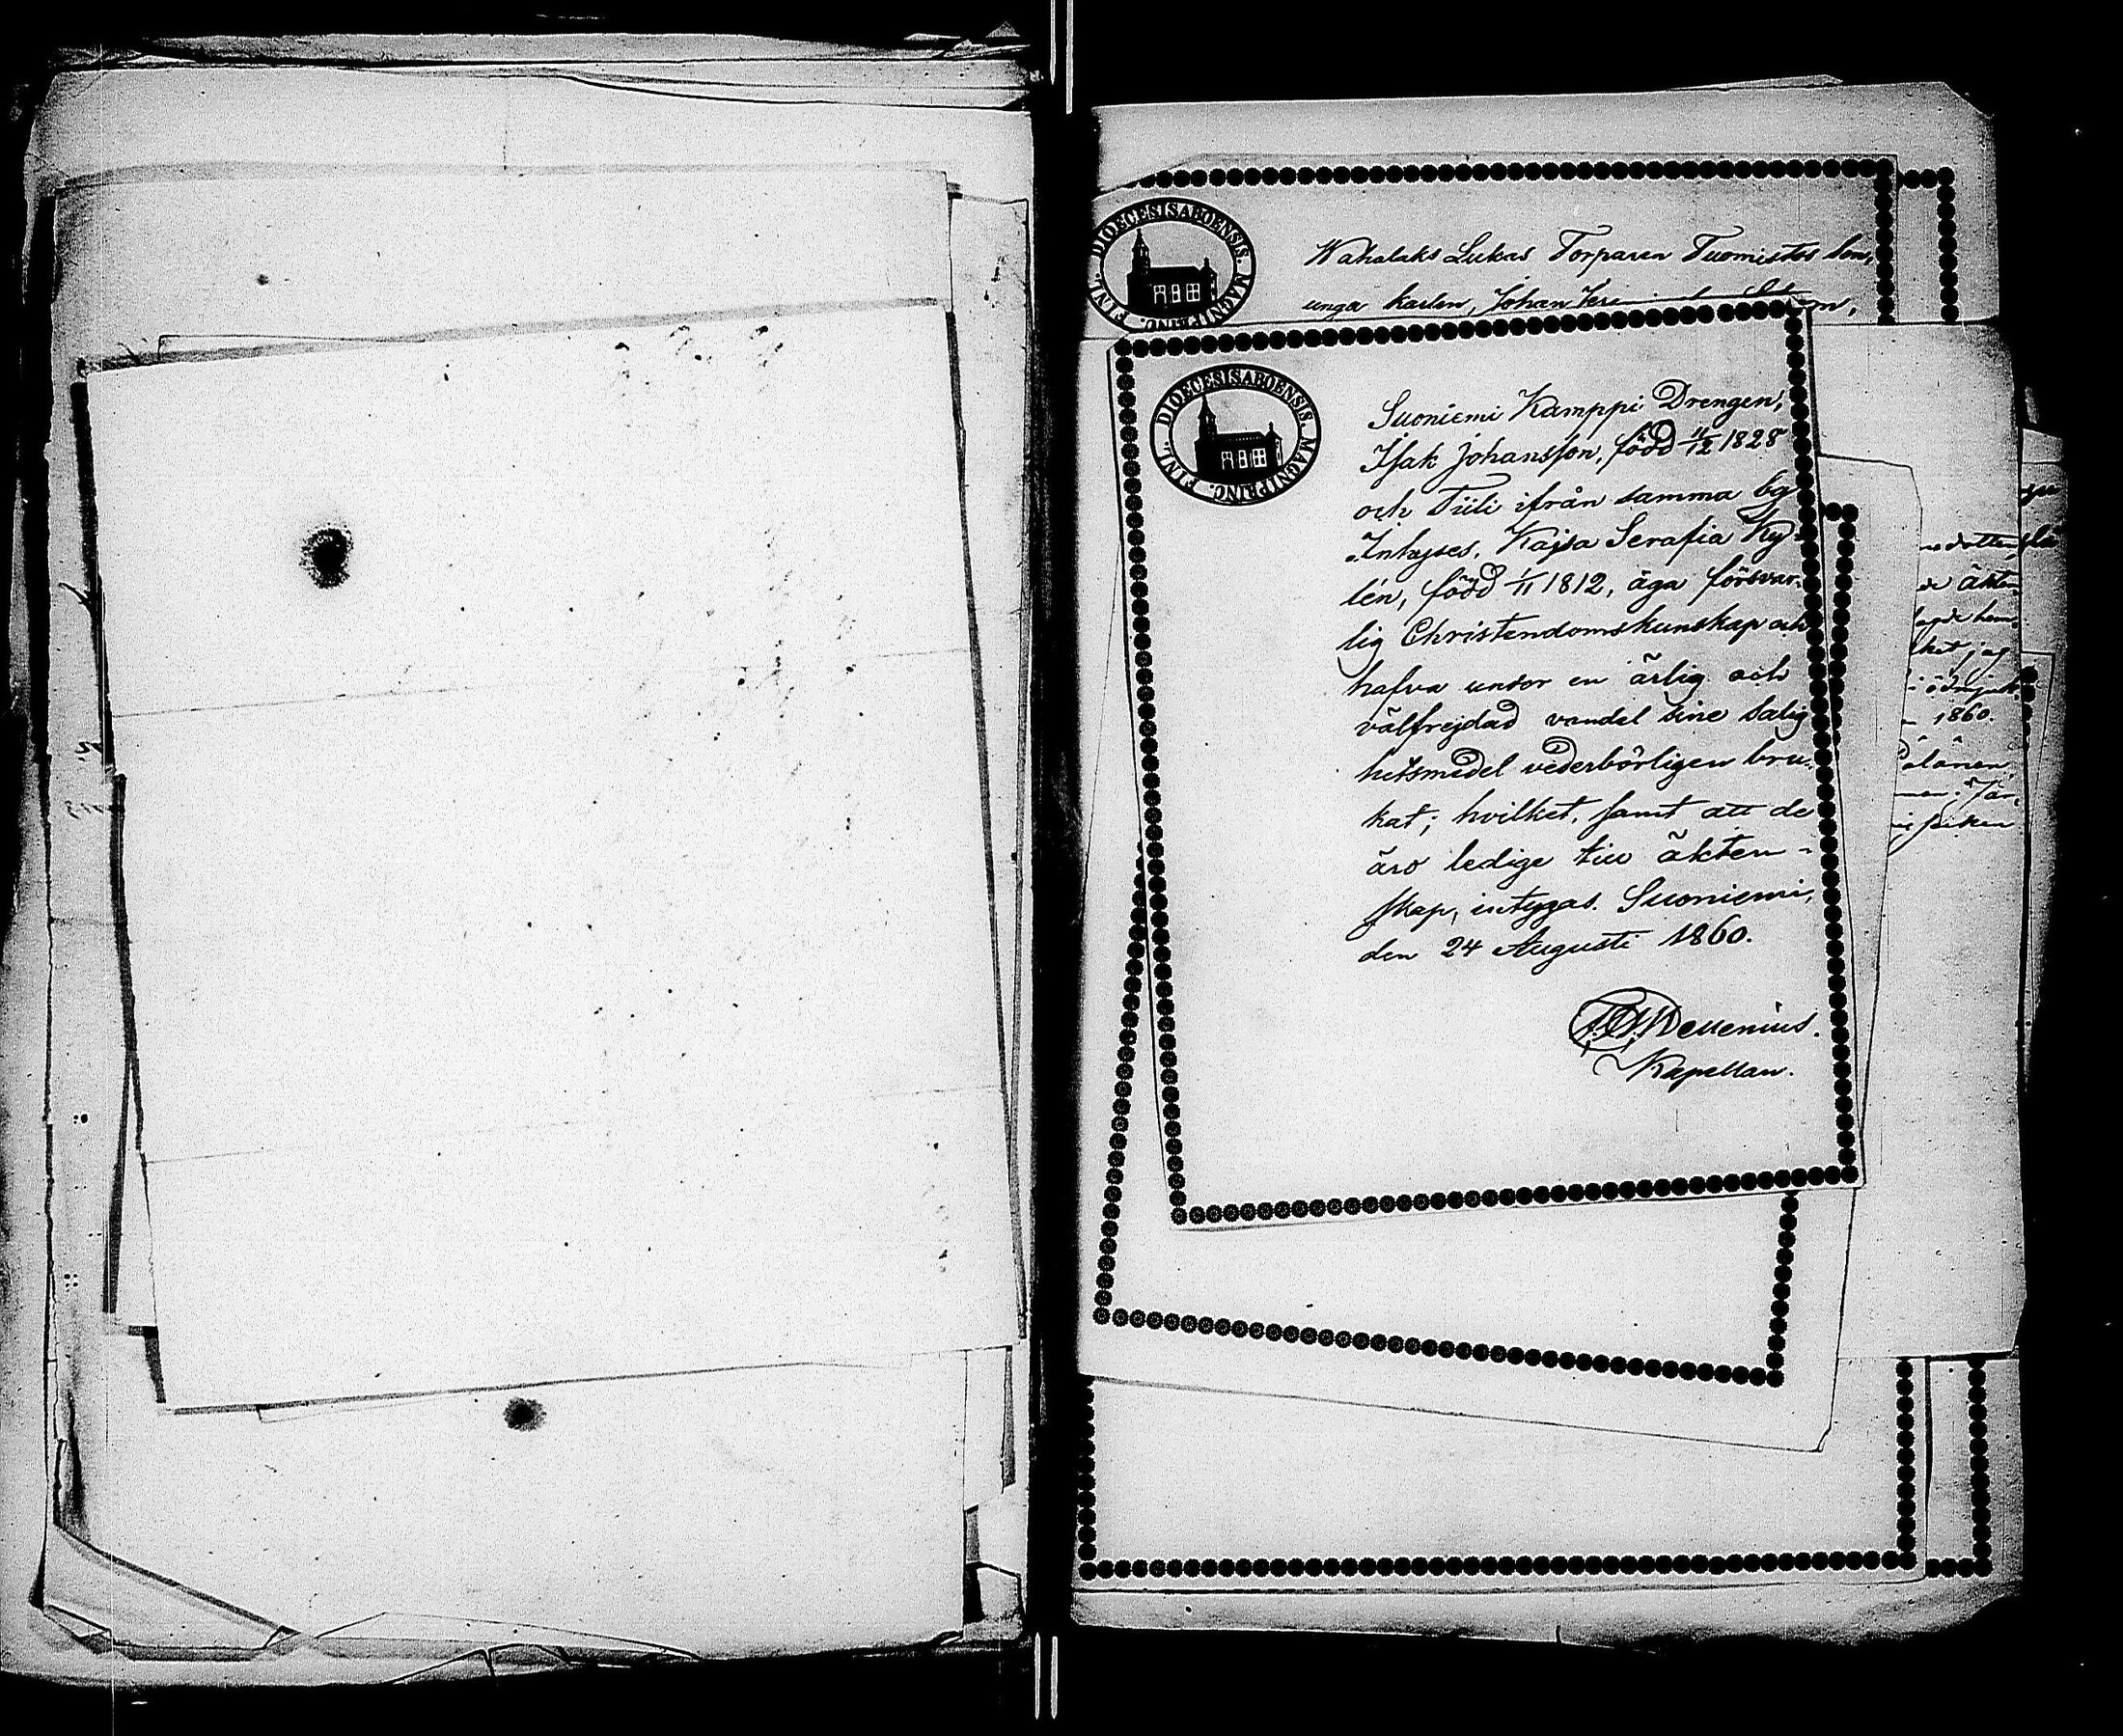 DIOECESIS ABOENSIS. MAGNI PRINC. FINL.
Wahalaks Lukas Torparen Tuomistos Son,
unga karlen, Johan
DIOECESIS ABOENSIS. MAGNI PRINC. FINL.
Suoniemi Kamppi Drengen,
Isak Johansson, född 11/12 1828
och Tiili ifrån samma by
Inhyses, Kajsa Serafia Ky-
lén, född 1/11 1812, äga försvar-
lig Christendomskunskap och
hafva under en ärlig och
välfrejdad vandel sine salig
hetsmedel vederbörligen bru-
kat; hvilket, samt att de
äro ledige till äkten-
skap, intygas. Suoniemi,
den 24 Augusti 1860.
Kapellan.
äkten
hem-
jag
1860.
piken